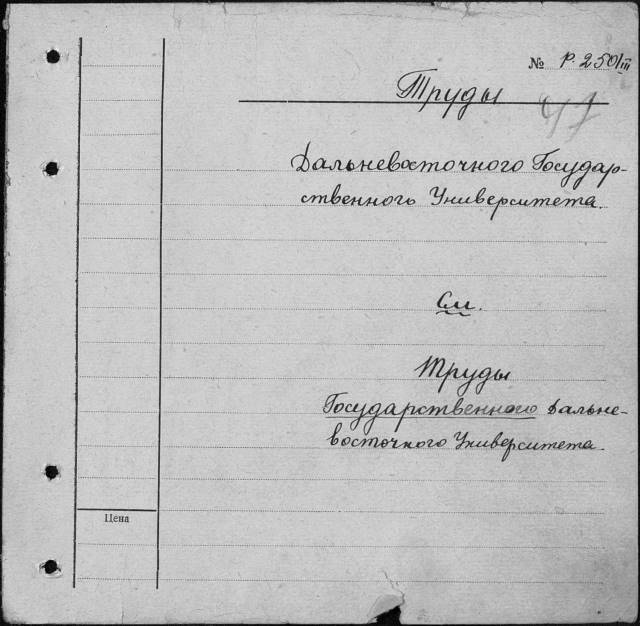 № Р. 250/III
Труды
47
Дальневосточного Государ-
ственного Университета.
См.
Труды
Государственного Дальне-
восточного Университета.
Цена